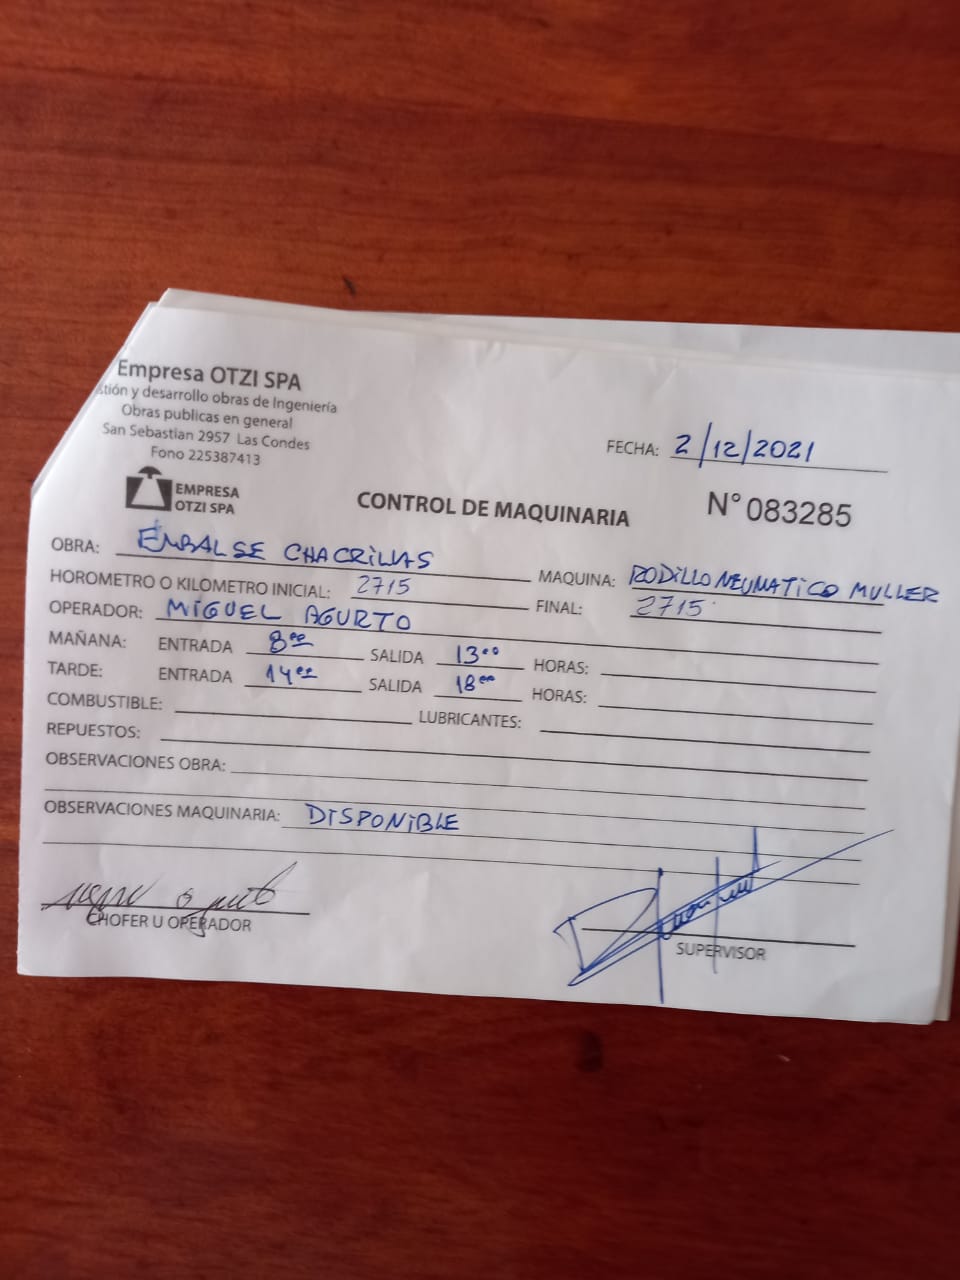 Empresa OTZI SPA
stión y desarrollo obras de Ingeniería
Obras publicas en general
San Sebastian 2957 Las Condes
Fono 225387413
EMPRESA
OTZI SPA
FECHA: 2/12/2021
CONTROL DE MAQUINARIA N° 083285
OBRA: EMBALSE CHACRILLAS MAQUINA: RODILLO NEUMATICO MULLER
HOROMETRO O KILOMETRO INICIAL: 2715 FINAL: 2715
OPERADOR: MIGUEL AGURTO
MAÑANA: ENTRADA 8:00 SALIDA 13:00 HORAS:
TARDE: ENTRADA 14:00 SALIDA 18:00 HORAS:
COMBUSTIBLE: LUBRICANTES:
REPUESTOS:
OBSERVACIONES OBRA:
OBSERVACIONES MAQUINARIA: DISPONIBLE
CHOFER U OPERADOR
SUPERVISOR